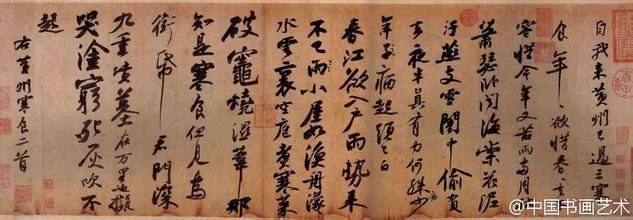 自我來黃州已過三寒
食年〻欲惜春〻去不
容惜今年又苦雨兩月秋
蕭瑟臥聞海棠花泥
汙燕支雪闇中偷負
去夜半真有力何殊病少
年子病起頭已白
春江欲入戶雨勢來
不已雨小屋如漁舟濛〻
水雲裏空庖煮寒菜
破竈燒濕葦那
知是寒食但見烏
銜帋君門深
九重墳墓在万里也擬
哭塗窮死灰吹不
起
右黃州寒食二首
@中国书画艺术